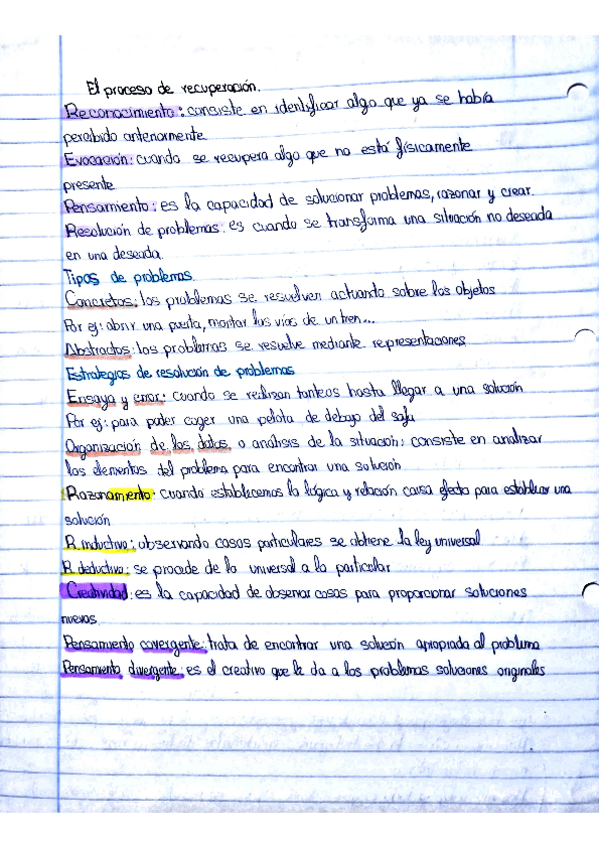 El proceso de recuperación.
Reconocimiento: consiste en identificar algo que ya se había
percibido anteriormente
Evocación: cuando se recupera algo que no está físicamente
presente
Pensamiento: es la capacidad de solucionar problemas, razonar y crear.
Resolución de problemas: es cuando se transforma una situación no deseada
en una deseada
Tipos de problemas
Concretos: los problemas se resuelven actuando sobre los objetos
Por ej: abrir una puerta, montar las vías de un tren...
Abstractos: los problemas se resuelve mediante representaciones
Estrategias de resolución de problemas
Ensaya y error: cuando se realizan tanteos hasta llegar a una solución
Por ej: para poder coger una pelota de debajo del sofa
Organización de los datos o análisis de la situación: consiste en analizar
los elementos del problema para encontrar una solución
Razonamiento: cuando establecemos la lógica y relación causa efecto para establecer una
solución
R. inductivo: observando casos particulares se obtiene la ley universal
R. deductivo: se procede de lo universal a lo particular
Creatividad: es la capacidad de observar cosas para proporcionar soluciones
nuevas.
Pensamiento covergente: trata de encontrar una solución apropiada al problema
Pensamiento divergente: es el creativo que le da a los problemas soluciones originales